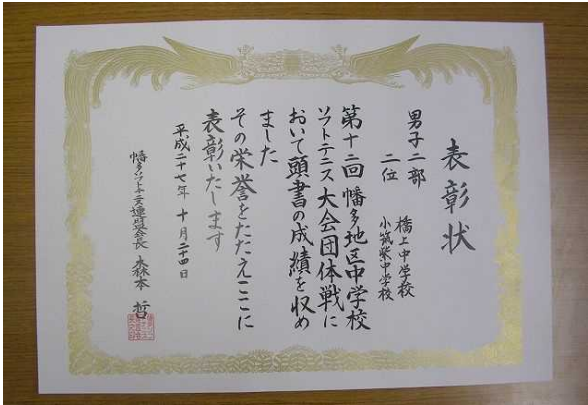 表彰状
男子二部
二位
橋上中学校
小筑紫中学校
第十二回幡多地区中学校
ソフトテニス大会団体戦に
おいて頭書の成績を収め
ました
その栄誉をたたえここに
表彰いたします
平成二十七年十月二十四日
幡多ソフトテニス連盟会長 森本 哲